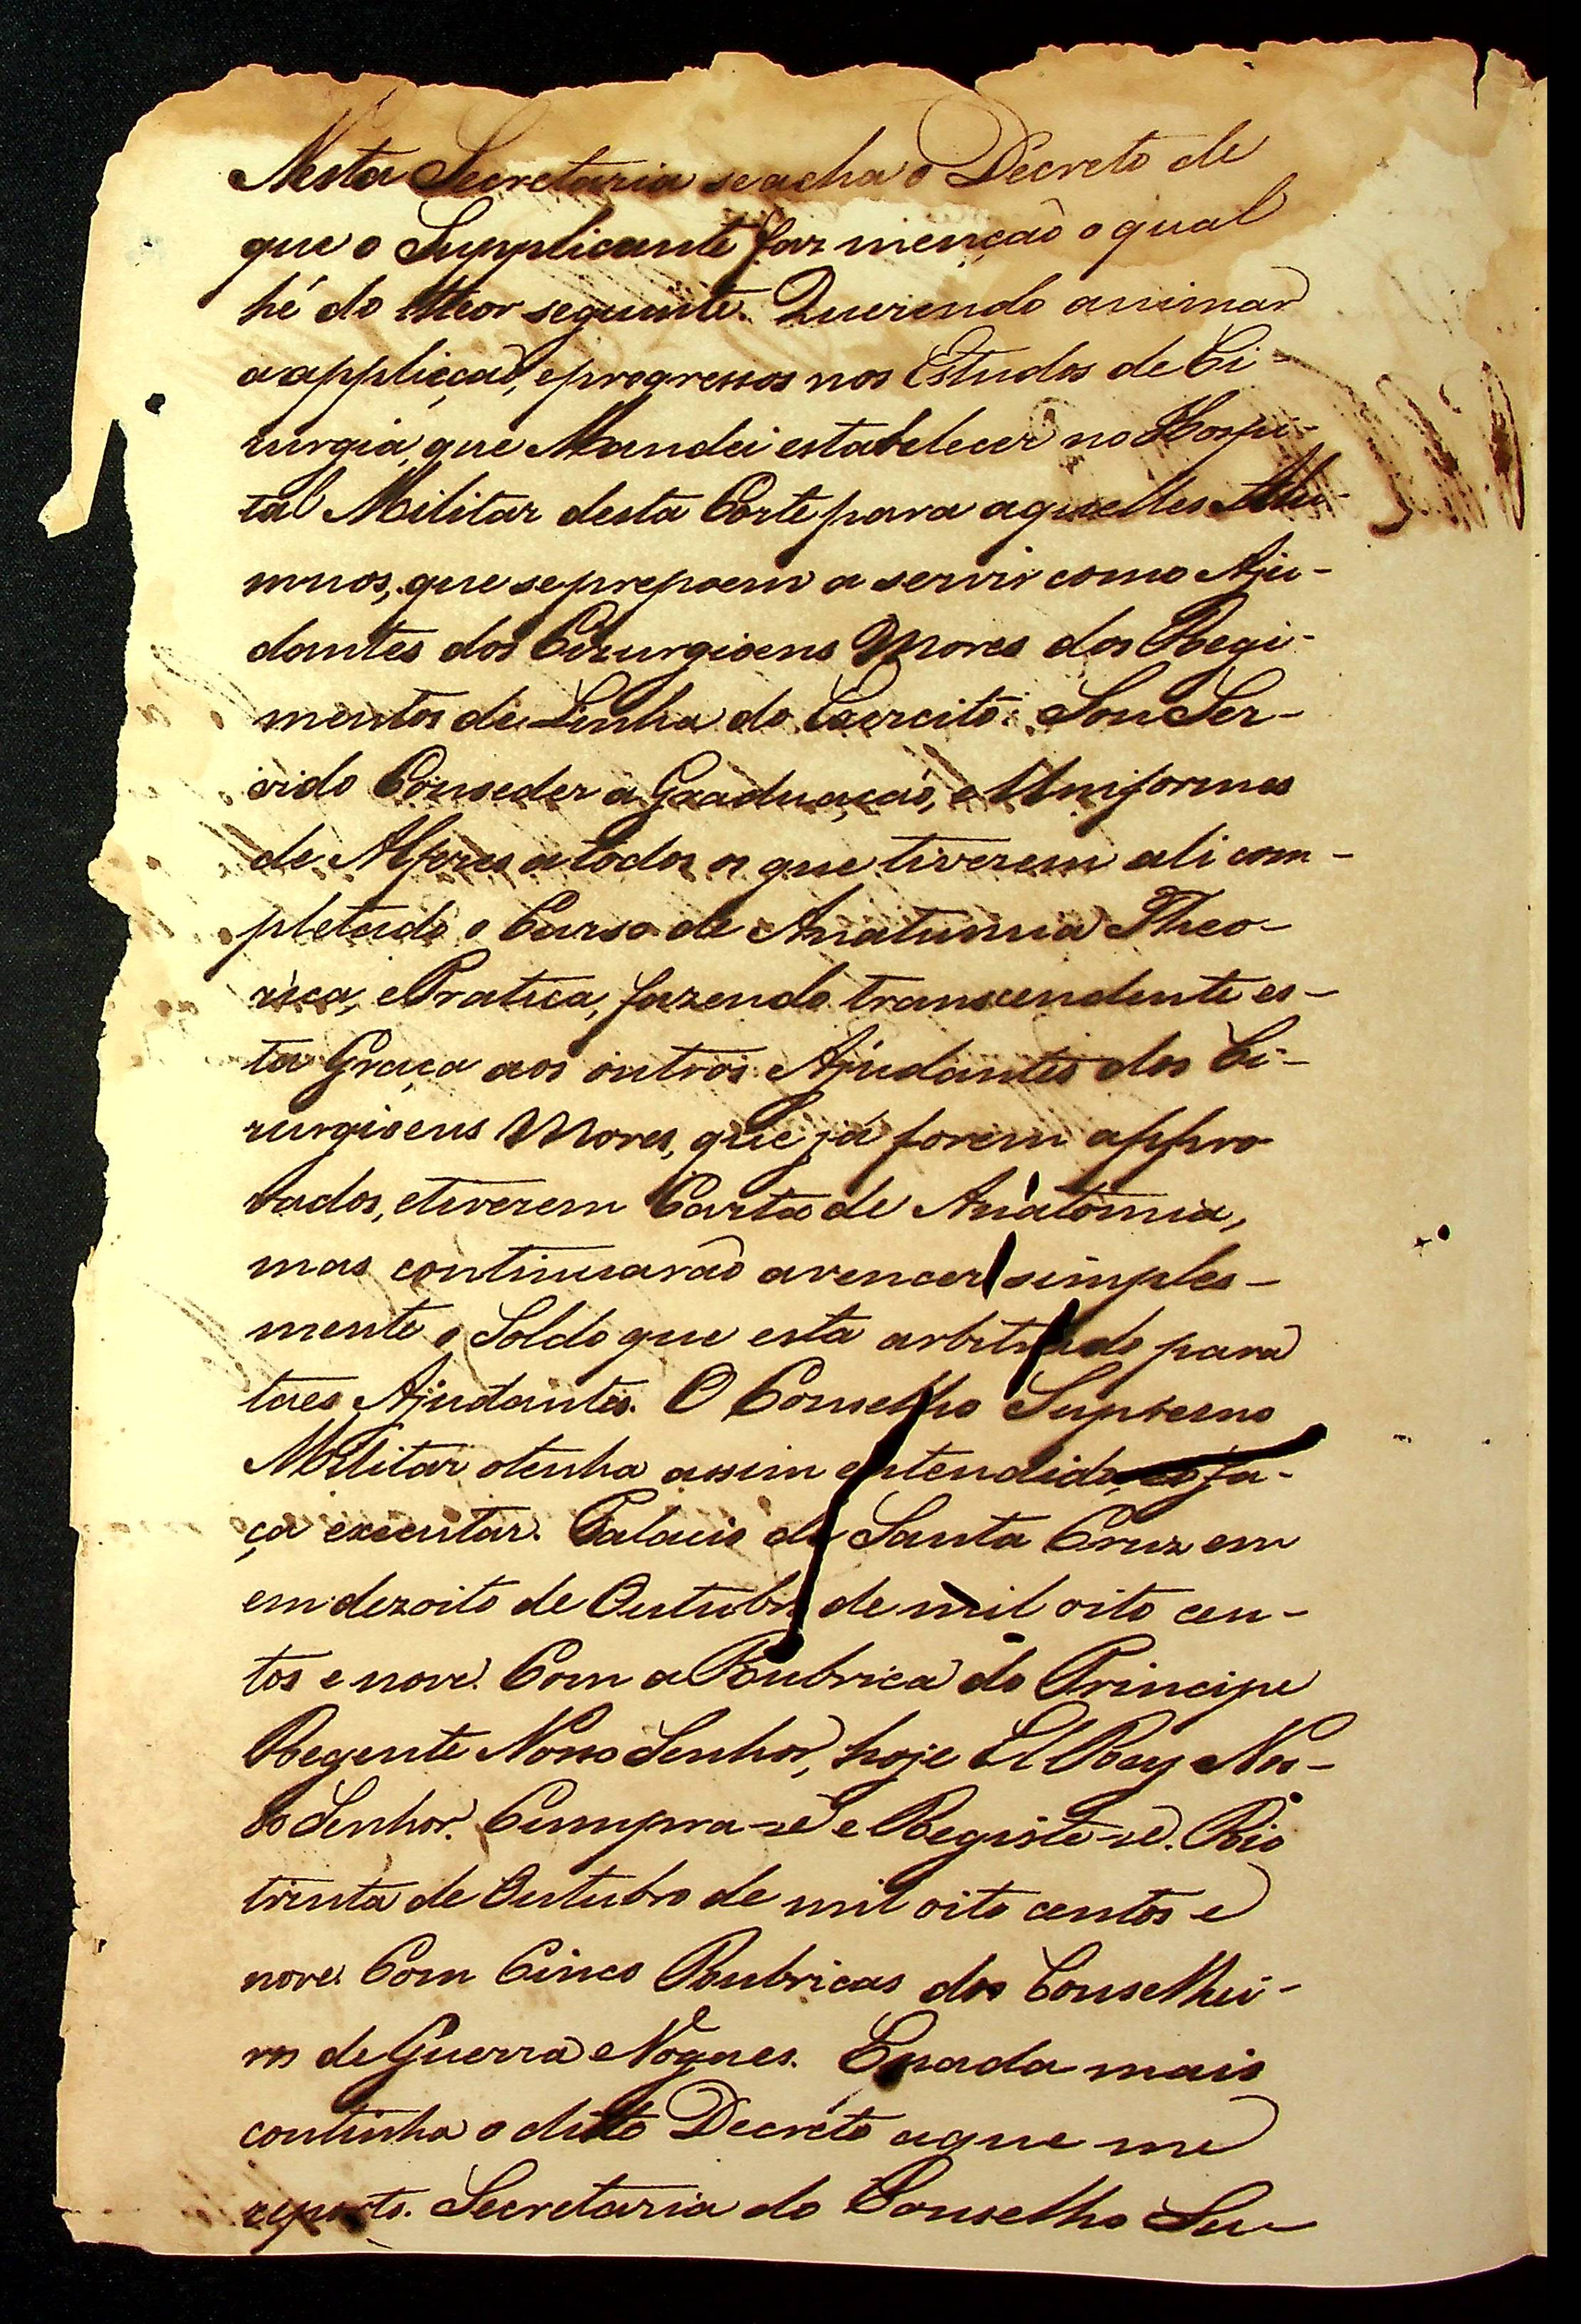 Nesta Secretaria se acha o Decreto de
que o Supplicante faz menção o qual
hé do theor seguinte. Querendo animar
a applicação, e progressos nos Estudos de Ci-
rurgia, que Mandei estabelecer no Hospi-
tal Militar desta Corte para aquelles Alu-
mnos, que se prepoem a servir como Aju-
dantes dos Cirurgioens Mores dos Regi-
mentos de Linha do Exercito: Sou Ser-
vido Conseder a Graaduação, e Uniformes
de Alferes a todos os que tiverem ali com-
pletado o Curso de Anatumia Theo-
rica, e Pratica, fazendo transcendente es-
ta Graça aos outros Ajudantes dos Ci-
rurgioens Mores, que já forem appro
vados, e tiverem Carta de Anatomia,
mas continuarão a vencer simples-
mente o Soldo que esta arbitrado para
taes Ajudantes. O Conselho Supremo
Militar o tenha assim entendido, e o fa-
ça executar. Palacio de Santa Cruz em
em dezoito de Outubro de mil oito cen-
tos e nove. Com a Rubrica do Principe
Regente Nosso Senhor, hoje El Rey Nos-
so Senhor. Cumpra-se e Registe-se. Rio
trinta de Outubro de mil oito centos e
nove. Com Cinco Rubricas dos Conselhei-
ros de Guerra e Vogaes. E nada mais
continha o dito Decreto a que me
reporto. Secretaria do Conselho Su-